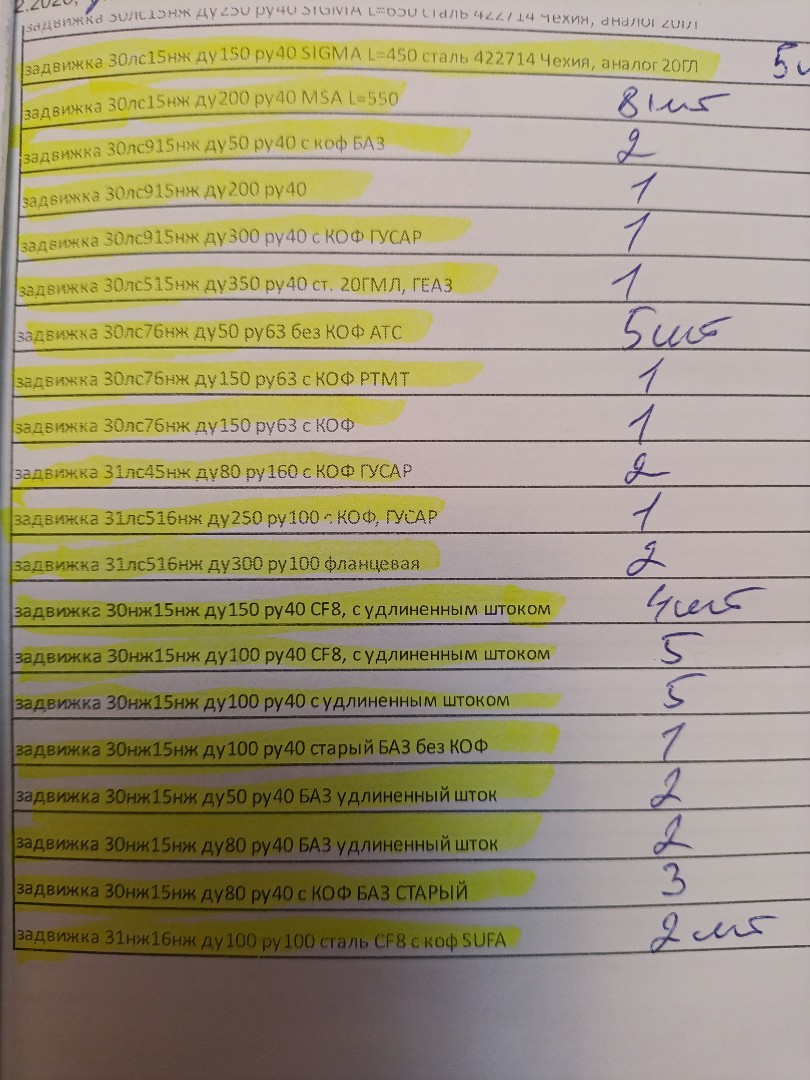 2.2020,
задвижка 30лс15нж ду250 ру40 SIGMA L=650 сталь 422714 Чехия, аналог 20ГЛ
задвижка 30лс15нж ду150 ру40 SIGMA L=450 сталь 422714 Чехия, аналог 20ГЛ 5
задвижка 30лс15нж ду200 ру40 MSA L=550 8 шт
задвижка 30лс915нж ду50 ру40 с коф БАЗ 2
задвижка 30лс915нж ду200 ру40 1
задвижка 30лс915нж ду300 ру40 с КОФ ГУСАР 1
задвижка 30лс515нж ду350 ру40 ст. 20ГМЛ, ГЕАЗ 1
задвижка 30лс76нж ду50 ру63 без КОФ АТС 5 шт
задвижка 30лс76нж ду150 ру63 с КОФ РТМТ 1
задвижка 30лс76нж ду150 ру63 с КОФ 1
задвижка 31лс45нж ду80 ру160 с КОФ ГУСАР 2
задвижка 31лс516нж ду250 ру100 с КОФ, ГУСАР 1
задвижка 31лс516нж ду300 ру100 фланцевая 2
задвижка 30нж15нж ду150 ру40 CF8, с удлиненным штоком 4 шт
задвижка 30нж15нж ду100 ру40 CF8, с удлиненным штоком 5
задвижка 30нж15нж ду100 ру40 с удлиненным штоком 5
задвижка 30нж15нж ду100 ру40 старый БАЗ без КОФ 1
задвижка 30нж15нж ду50 ру40 БАЗ удлиненный шток 2
задвижка 30нж15нж ду80 ру40 БАЗ удлиненный шток 2
задвижка 30нж15нж ду80 ру40 с КОФ БАЗ СТАРЫЙ 3
задвижка 31нж16нж ду100 ру100 сталь CF8 с коф SUFA 2 шт